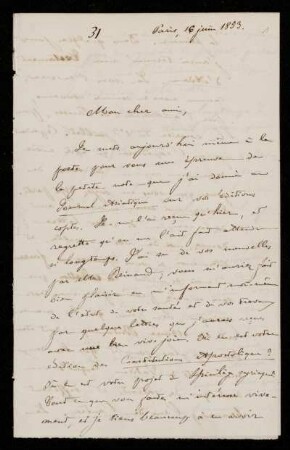 31
Paris, 16 juin 1853.
Mon cher ami,
Je mets aujourd'hui même à la
poste pour vous une épreuve de
la petite note que j'ai donnée au
Journal Asiatique sur vos éditions
coptes. Je ne l'ai reçue qu'hier, et
regrette qu'on l'ait fait attendre
si longtemps. J'ai su de vos nouvelles
par Mr Reinaud; vous m'auriez fait
bien plaisir en m'informant
de l'état de votre santé et de vos travaux
par quelques lettres que j'aurais reçues
avec une bien vive joie. Où en est votre
édition des Constitutions Apostoliques?
Où en est votre projet de Spicilège syriaque?
Tout ce que vous faites m'intéresse vive-
ment, et je tiens beaucoup à en avoir